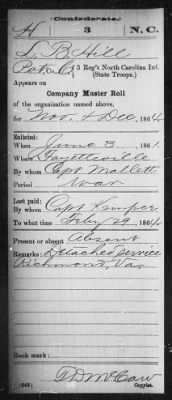 (Confederate.)
H 3 N.C.
L. B. Hill
Pvt, Co. 3 Reg't North Carolina Inf.
(State Troops.)
Appears on
Company Muster Roll
of the organization named above,
for Nov. & Dec, 1864
Enlisted:
When June 3, 1861
Where Fayetteville
By whom Capt Mallett
Period War
Last paid:
By whom Capt Kemper
To what time Feby 29, 1864
Present or absent Absent
Remarks: Detached service
Richmond, Va,
Book mark:
(642) T D McCaw
Copyist.